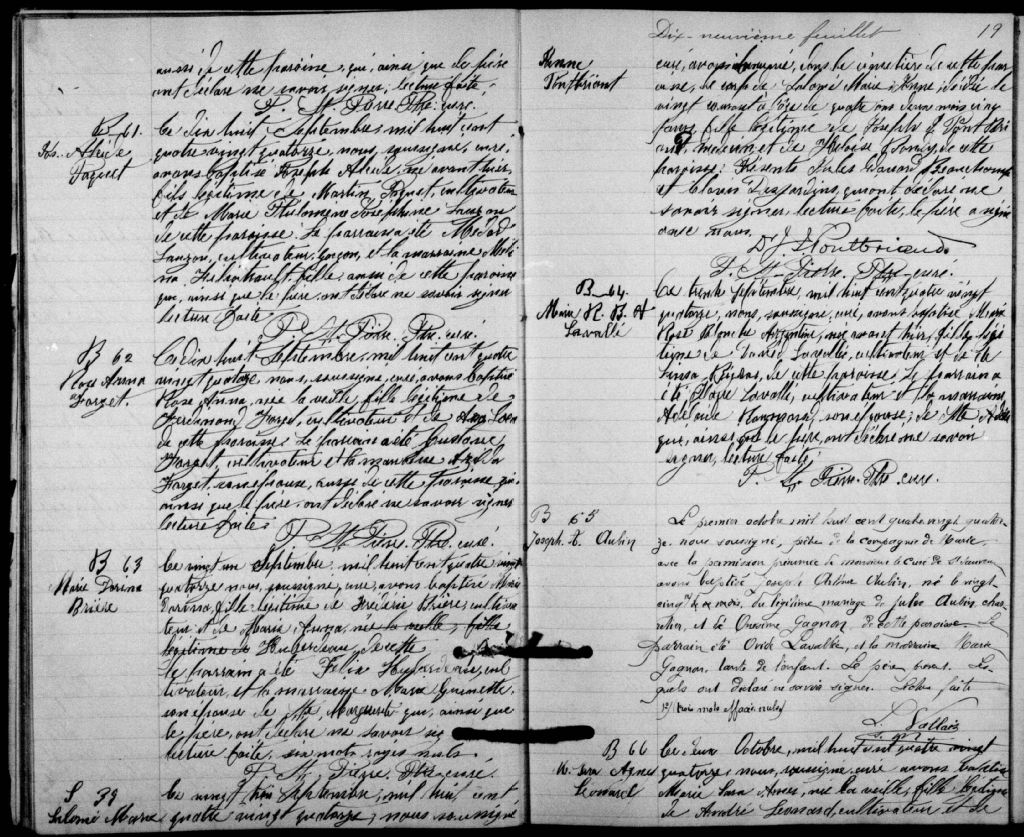 aussi de cette paroisse, qui, ainsi que le père
ont déclaré ne savoir signer, lecture faite,
F. St Pierre Ptre curé.
B 61.
Jos. Alcide
Paquet
Ce dix huit Septembre, mil huit cent
quatre vingt quatorze, nous, soussigné, curé,
avons baptisé Joseph Alcide, né avant hier,
fils légitime de Martin Paquet, cultivateur
et de Marie Philomène Joséphine Lauzon
de cette paroisse. Le parrain a été Médard
Lauzon, cultivateur, garçon, et la marraine
fille, aussi de cette paroisse
qui, ainsi que le père, ont déclaré ne savoir signer
lecture faite.
F. St Pierre. Ptre. curé.
B 62
Rose Anna
Forget.
Ce dix huit Septembre, mil huit cent quatre
vingt quatorze nous, soussigné, curé, avons baptisé
Rose Anna, née la veille, fille légitime de
Ferdinand Forget, cultivateur et de
de cette paroisse. Le parrain a été Gustave
Forget, cultivateur et la marraine
Forget, son épouse, aussi de cette paroisse qui,
ainsi que le père, ont déclaré ne savoir signer
lecture faite.
F. St Pierre. Ptre. curé.
B 63
Marie Dorina
Brière
Ce vingt un Septembre mil huit cent quatre vingt
quatorze nous, soussigné, curé, avons baptisé Marie
Dorina, fille légitime de Frédéric Brière, cultiva-
teur et de Marie Anna, née la veille, fille
légitime de Huberdeau, de cette
le parrain a été Félix Huberdeau, cul
tivateur, et la marraine Marie Guénette
son épouse de Ste Marguerite qui, ainsi que
le père, ont déclaré ne savoir si
lecture faite, six mots rayés nuls.
F. St Pierre. Ptre curé.
S 39
Salomé Marie
Ce vingt Septembre, mil huit cent,
quatre vingt quatorze, nous soussigné
Dix-neuvième feuillet 19
Hanna
Pontbriant
curé, avons inhumé, dans le cimetière de cette par
oisse, le corps de Salomé Marie Anna, décédée le
vingt courant à l'âge de quatre ans deux mois cinq
jours, fille légitime de Joseph J. Pont Bri
ant, médecin et de Héloise de cette
paroisse. Présents Jules Edouard Beauchamp
et Desjardins, qui ont déclaré ne
savoir signer, lecture faite, le père a signé
avec nous.
Dr J. J. Pontbriand
F. St Pierre. Ptre curé.
B 64.
Marie R. B. A
Lavallé
Ce trente Septembre, mil huit cent quatre vingt
quatorze, nous, soussigné, curé, avons baptisé Marie
Rose Blanche Argentine, née avant hier, fille légi
time de David Lavallé, cultivateur et de
de cette paroisse. Le parrain a
été Lavallé, cultivateur et la marraine,
son épouse; de Ste Adèle
qui, ainsi que le père, ont déclaré ne savoir
signer, lecture faite;
F. St Pierre. Ptre curé.
B 65
Joseph. A. Aubin
Le premier octobre mil huit cent quatre vingt quator-
ze. nous soussigné, prêtre de la compagnie de Marie
avec la permission présumée de monsieur le Curé de St Sauveur
avons baptisé Joseph Arthur Aubin, né le vingt
cinq de ce mois, du légitime mariage de Jules Aubin char-
retier, et de Onésime Gagnon de cette paroisse. Le
parrain été Ovide Lavallée, et la marraine Marie
Gagnon, tante de l'enfant. Le père absent. Les-
quels ont déclaré ne savoir signer. Lecture faite
trois mots effacés nuls
L. Vallais
s. m
B 66
Agnes
Leonard
Ce deux Octobre, mil huit cent quatre vingt
quatorze, nous, soussigné curé avons baptisé
Marie Agnes, née la veille, fille légitime
de André Léonard, cultivateur et de